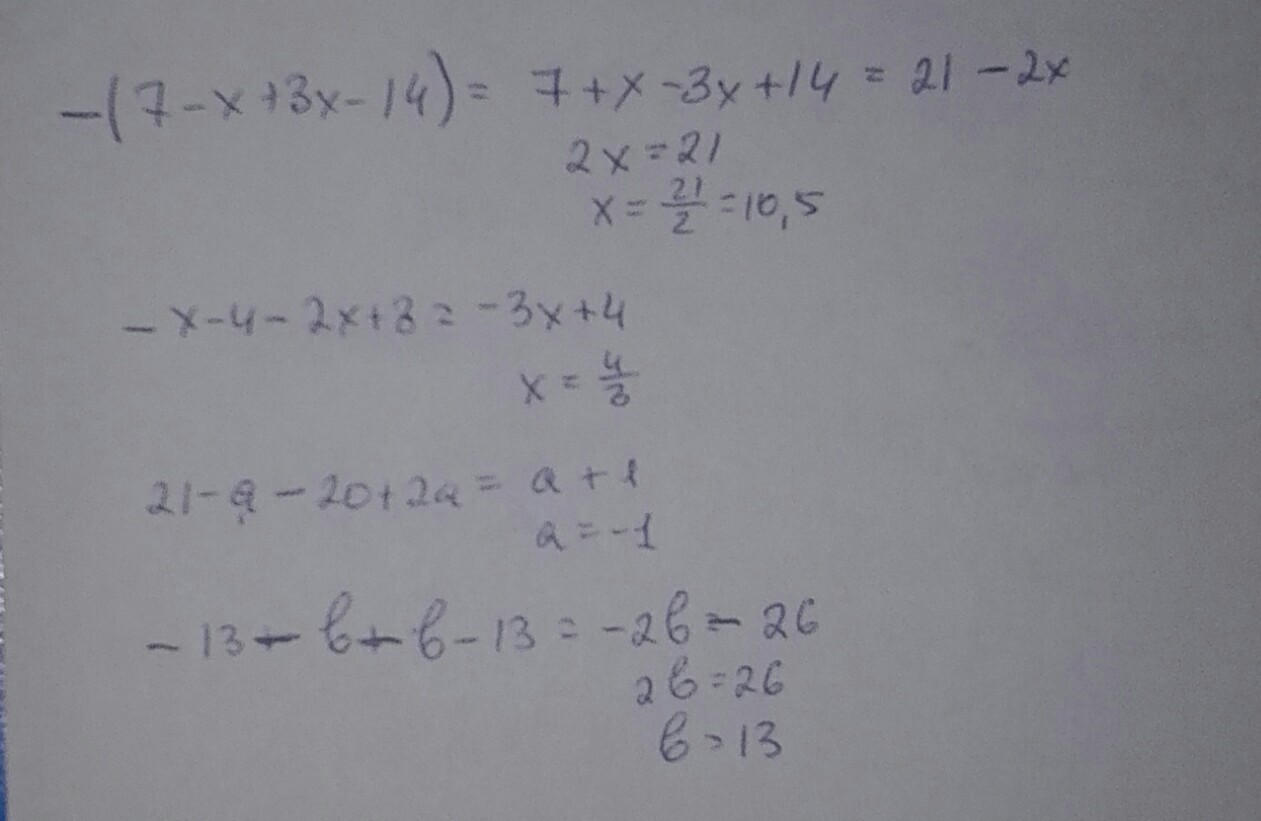 -(7-x+3x-14)= 7+x-3x+14 = 21-2x
2x=21
x=21/2=10,5
-x-4-2x+8=-3x+4
x=4/3
21-a-20+2a=a+1
a=-1
-13-b-b-13=-2b-26
2b=26
b=13